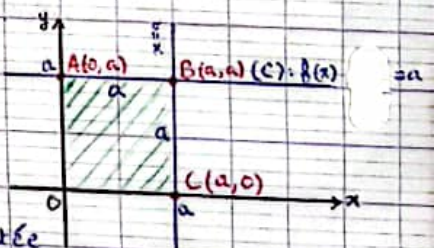 y
x=a
a A(0,a) B(a,a) (C): f(x) =a
a
a
C(a,0) x
0 a